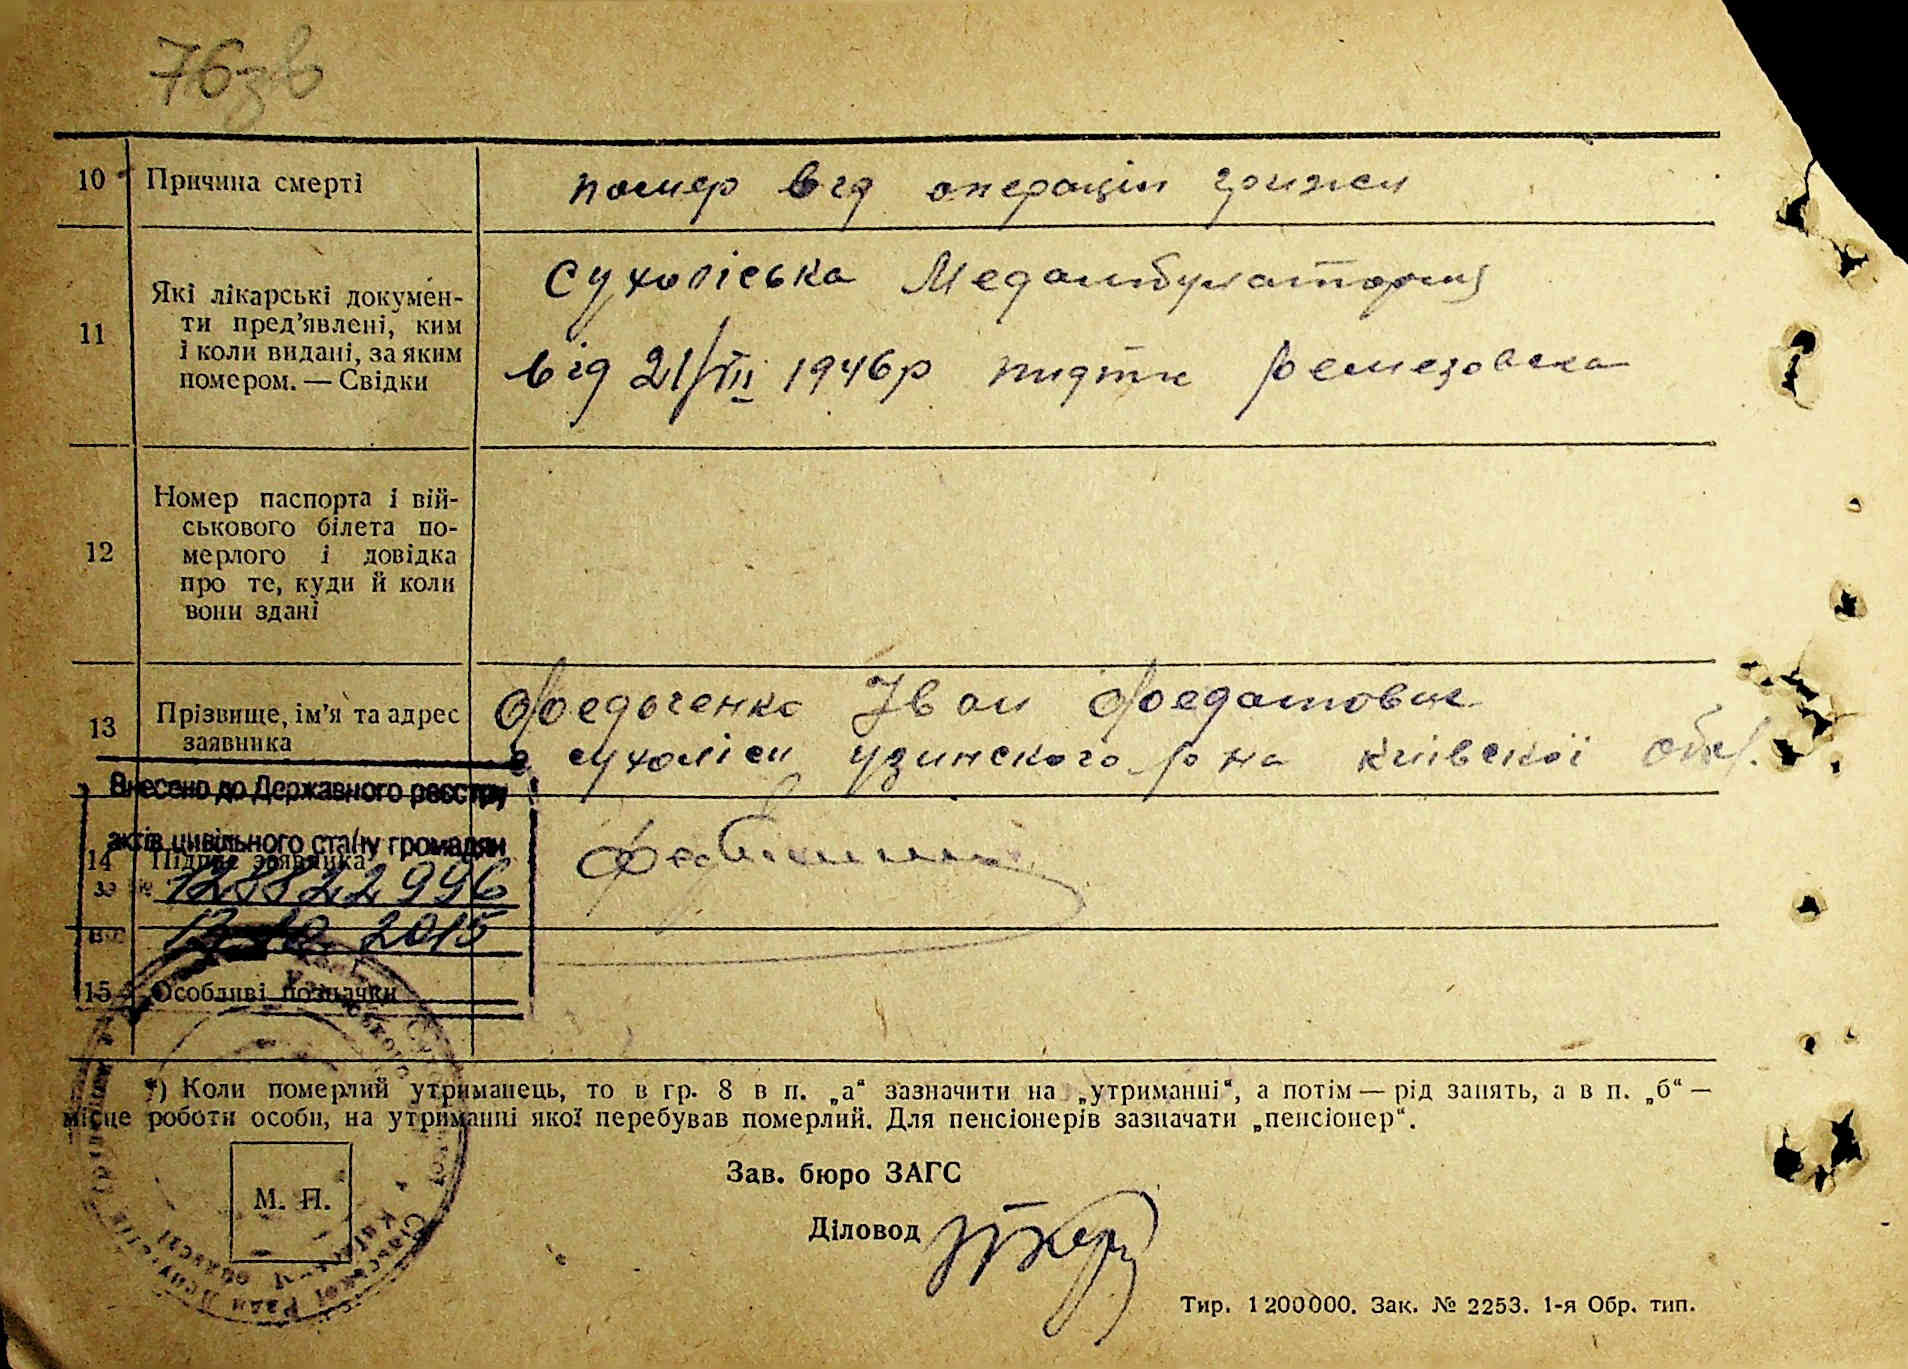 76зв
10 Причина смерті
помер від операціи грижи
11 Які лікарські докумен-
ти пред’явлені, ким
і коли видані, за яким
номером. — Свідки
Сухоліська Медамбулаторія
від 21/VII 1946р підпис Ремезовска
12 Номер паспорта і вій-
ськового білета по-
мерлого і довідка
про те, куди й коли
вони здані
13 Прізвище, ім’я та адрес
заявника
Федьченко Іван
с сухоліси узинского р на київскої обл.
Внесено до Державного реєстру
актів цивільного стану громадян
14 Підпис заявника
за № 128822996
2015
15 Особливі позначки
*) Коли померлий утриманець, то в гр. 8 в п. „а“ зазначити на „утриманні“, а потім — рід занять, а в п. „б“ —
місце роботи особи, на утриманні якої перебував померлий. Для пенсіонерів зазначати „пенсіонер“.
Зав. бюро ЗАГС
М. П.
Діловод
Тир. 1200000. Зак. № 2253. 1-я Обр. тип.